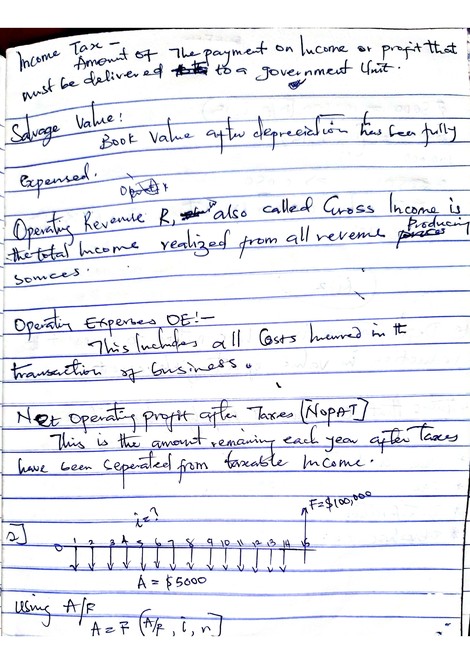 Income Tax -
Amount of The payment on Income or profit that
must be delivered to a government Unit.
Salvage Value:
Book Value after depreciation has been fully
Expensed.
Operating Revenue R, also called Gross Income is
the total Income realized from all revenue Producing
sources.
Operating Expenses OE:-
This Includes all Costs Incurred in the
transaction of business.
Net Operating profit after Taxes [NOPAT]
This is the amount remaining each year after Taxes
have been seperated from taxable Income.
F=$100,000
i=?
2]
0 1 2 3 4 5 6 7 8 9 10 11 12 13 14 15
A = $5000
Using A/F
A = F (A/F, i, n]